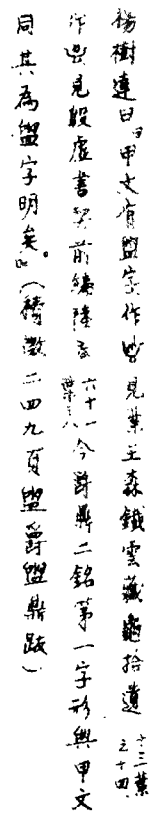 楊樹達曰:「甲文有盟字,作 見葉玉森鐵雲藏龜拾遺十三葉之十四,
作 見殷虛書契前編陸卷六十一葉之八 今爵鼎二銘第一字形與甲文
同,其為盟字明矣。」(積微二四九頁盟爵盟鼎跋)